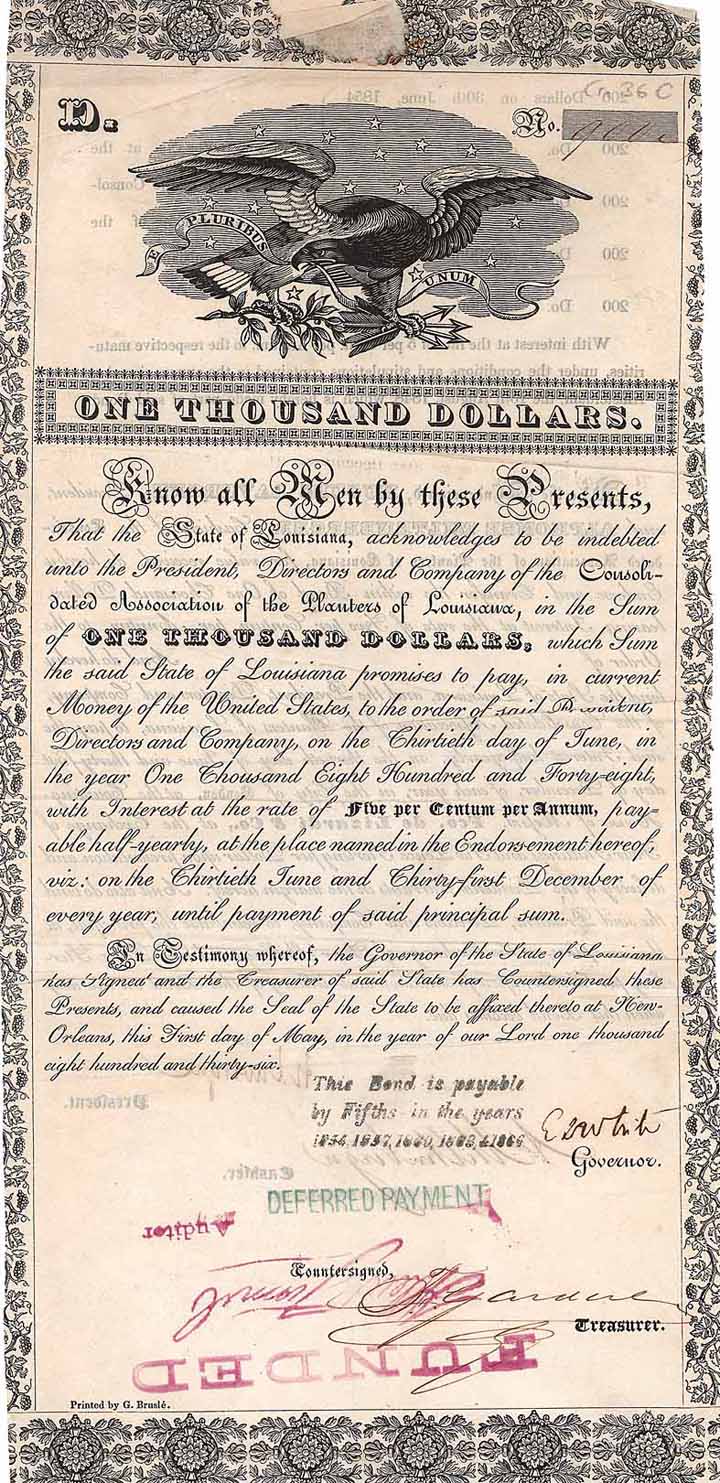 D.
No.
E PLURIBUS UNUM
ONE THOUSAND DOLLARS.
Know all Men by these Presents,
That the State of Louisiana, acknowledges to be indebted
unto the President, Directors and Company of the Consoli-
dated Association of the Planters of Louisiana, in the Sum
of ONE THOUSAND DOLLARS, which Sum
the said State of Louisiana promises to pay, in current
Money of the United States, to the order of said President,
Directors and Company, on the Thirtieth day of June, in
the year One Thousand Eight Hundred and Forty-eight,
with Interest at the rate of Five per Centum per Annum, pay-
able half-yearly, at the place named in the Endorsement hereof,
viz: on the Thirtieth June and Thirty-first December of
every year, until payment of said principal sum.
In Testimony whereof, the Governor of the State of Louisiana
has signed and the Treasurer of said State has Countersigned these
Presents, and caused the Seal of the State to be affixed thereto at New-
Orleans, this First day of May, in the year of our Lord one thousand
eight hundred and thirty-six.
This Bond is payable
by Fifths in the years
1854, 1857, 1860, 1863, & 1866
E D White
Governor.
DEFERRED PAYMENT
Auditor
Countersigned,
Treasurer.
FUNDED
Printed by G. Bruslé.